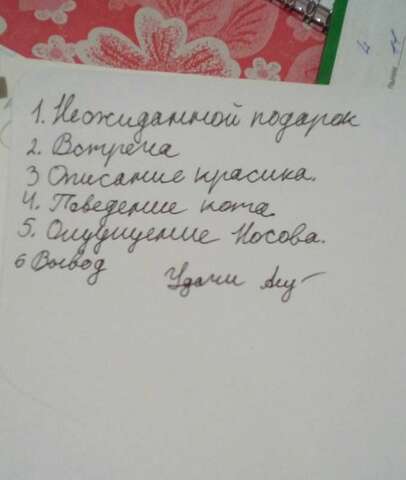 1. Неожиданной подарок
2. Встреча
3 Описание красика.
4. Поведение кота
5. Ощущение Носова.
6 Вывод
Удачи